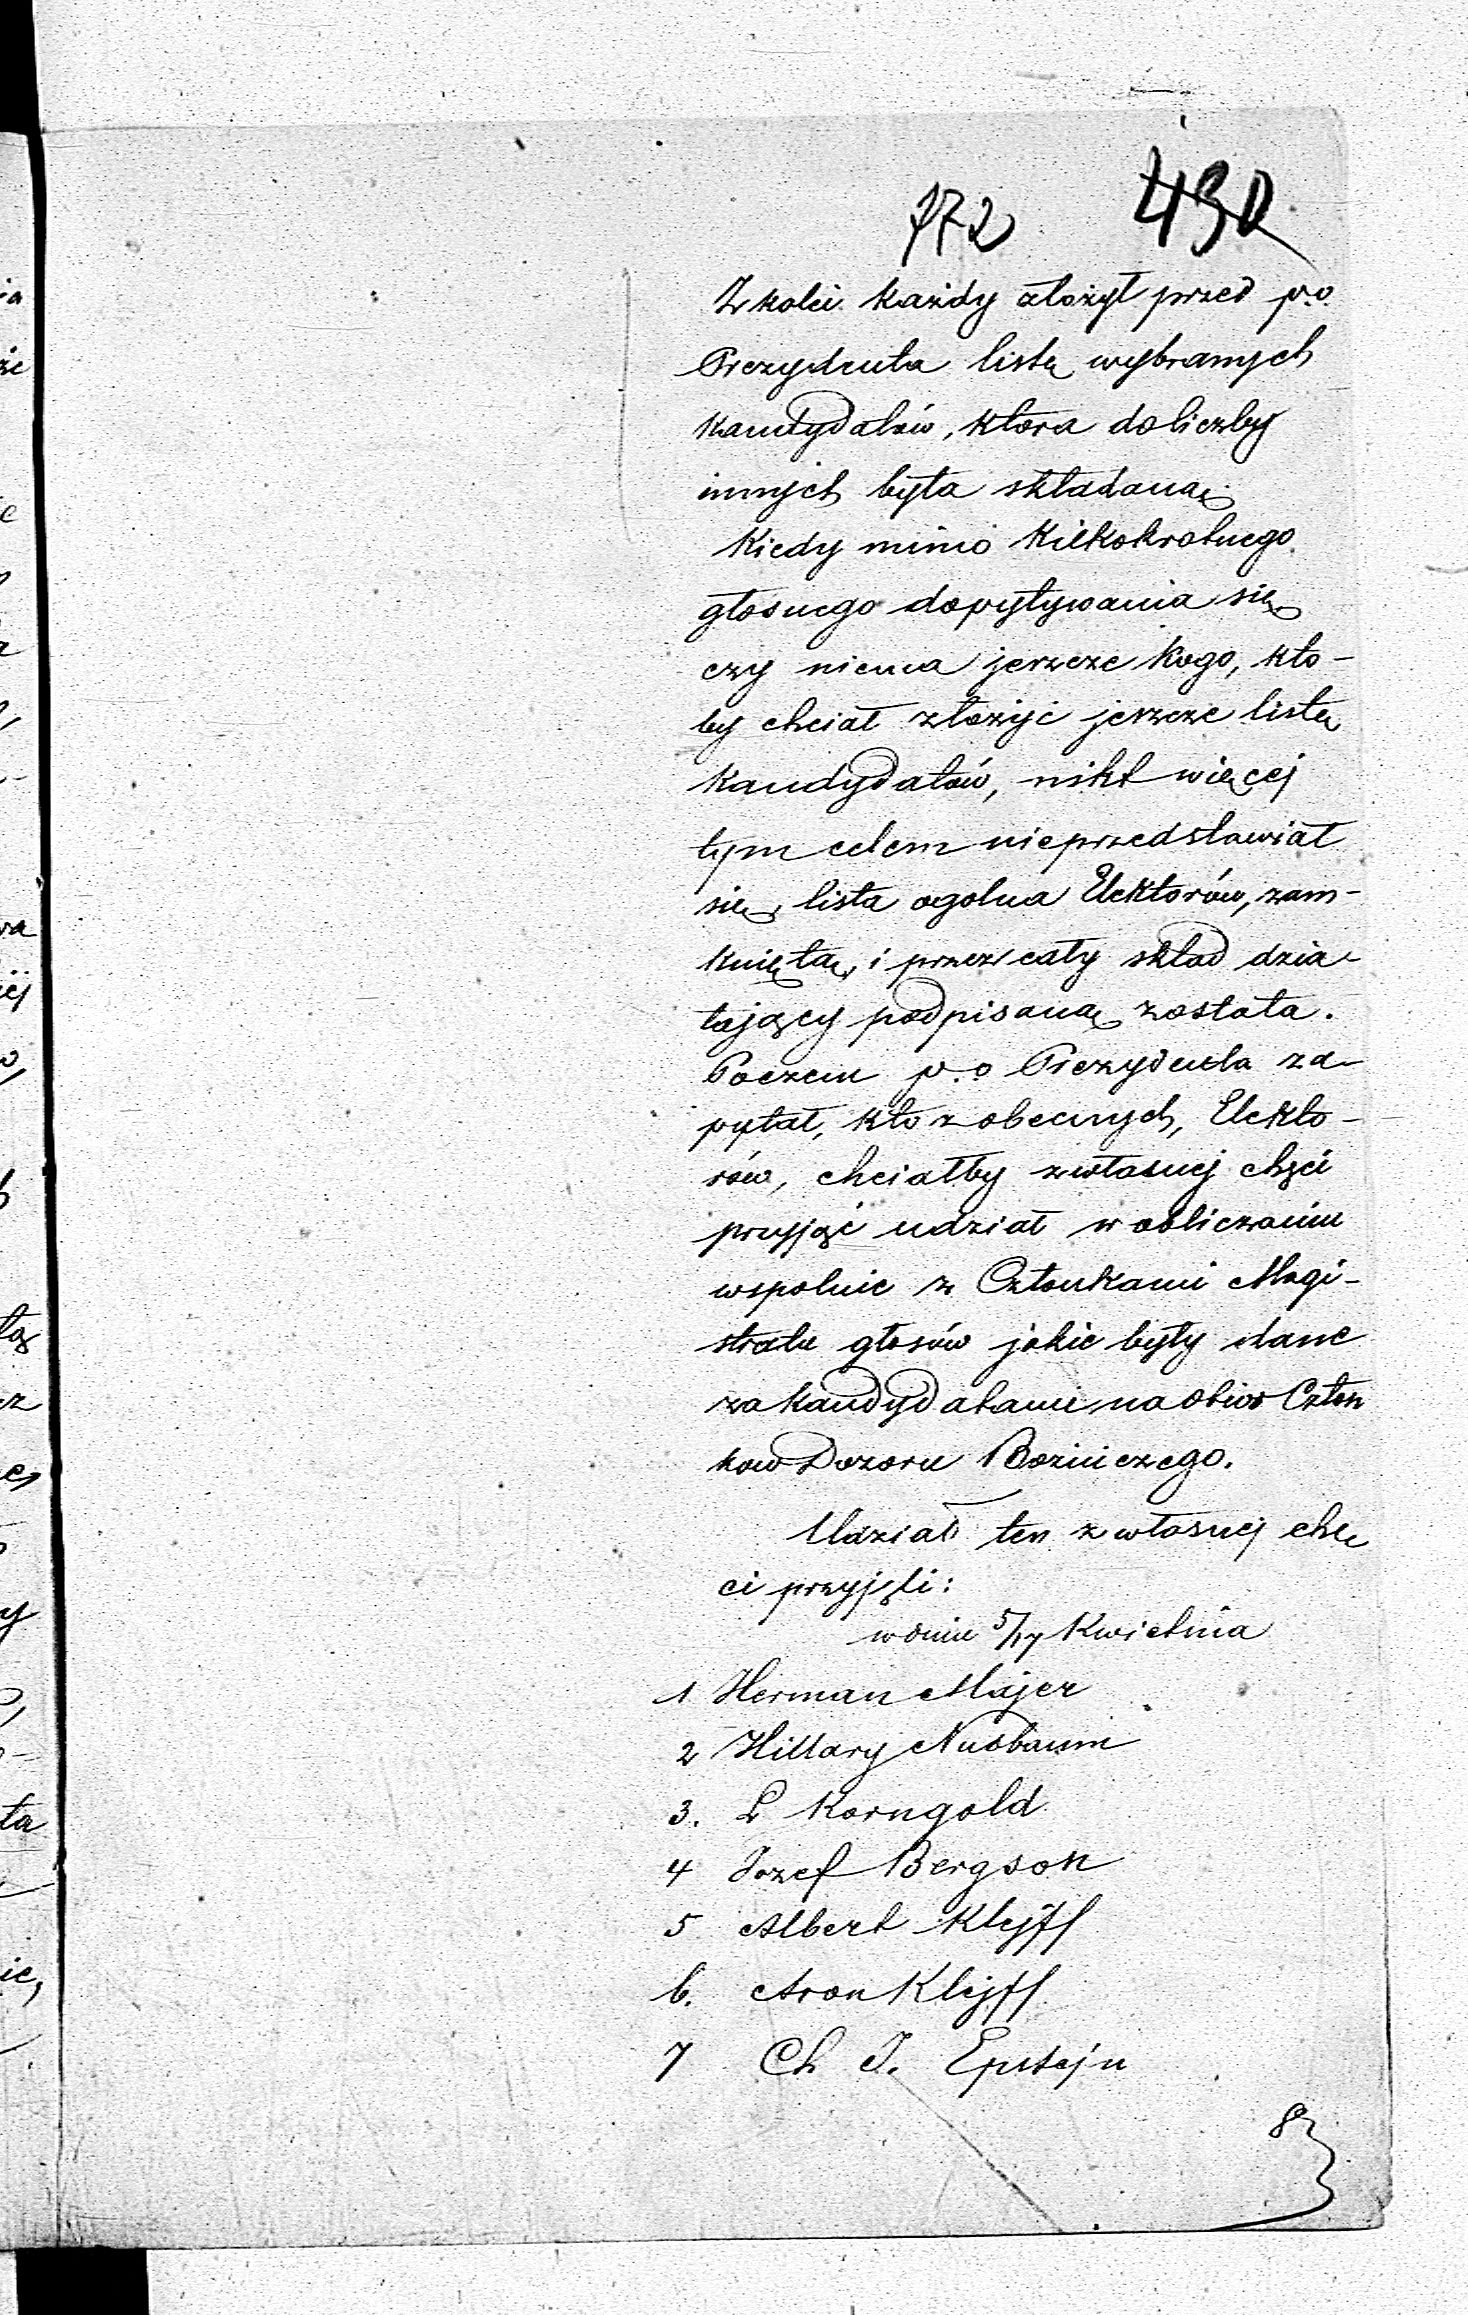 172 430
Z kolei każdy złożył przed p.o.
Prezydenta listę wybranych
kandydatów, ktora do liczby
innych była składaną.
Kiedy mimo kilkokrotnego
głosnego dopytywania się
czy niema jeszcze kogo, kto-
by chciał złożyć jeszcze listę
kandydatów, nikt więcej
tym celem nieprzedstawiał
się, lista ogolna Elektorów, zam-
kniętą, i przez cały skład dzia-
łający podpisaną została.
Poczem p.o Prezydenta za-
pytał, kto z obecnych, Elekto-
rów, chciałby z własnej chęci
przyjąć udział w obliczaniu
wspolnie z Członkami Magi-
stratu głosów jakie były dane
za kandydatami na obior Człon
kow Dozoru Bożniczego.
Udział ten z własnej chę
ci przyjęli:
w dniu 5/17 Kwietnia
1 Herman Majer
2 Hillary Nusbaum
3. L Korngold
4 Jozef Bergson
5 Albert Klejff
6. Aron Klejff
7 Ch J. Epstejn
8